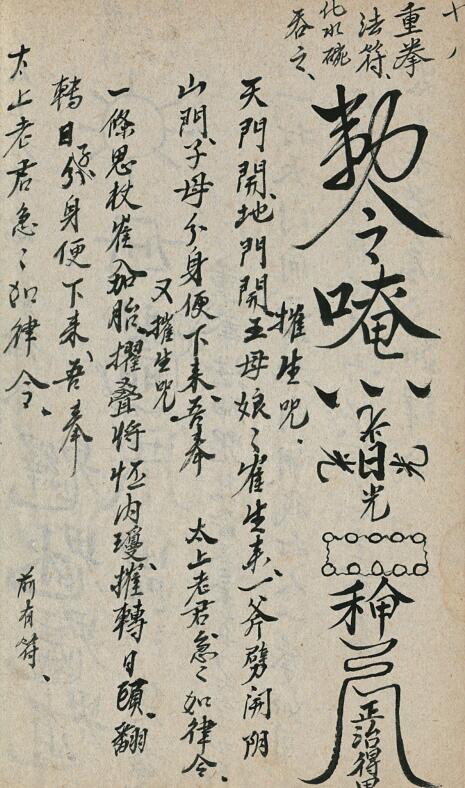 十、
重拳
法符、
化水碗
吞之、
勅令
唵
八
日光
正治得
摧生咒、
天門開、地門開、王母娘〻崔生来、一斧劈開阴
山門、子母分身便下来、吾奉 太上老君急〻如律令、
又摧生咒、
一條思杖崔入加胎、擢叠将怌内瓊、摧轉日頋、翻
轉日孩分身便下来、吾奉
太上老君急〻如律令、
前有符、